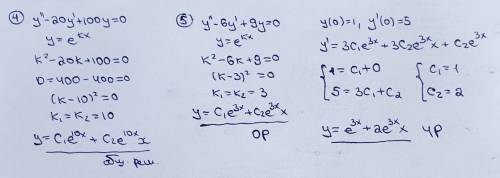 ④ y''-20y'+100y=0
y=e^{kx}
k²-20k+100=0
D=400-400=0
(k-10)²=0
k₁=k₂=10
y=C₁e^{10x}+C₂e^{10x}x
общ. реш.
⑤ y''-6y'+9y=0
y=e^{kx}
k²-6k+9=0
(k-3)²=0
k₁=k₂=3
y=C₁e^{3x}+C₂e^{3x}x
ОР
y(0)=1, y'(0)=5
y'=3C₁e^{3x}+3C₂e^{3x}x+C₂e^{3x}
{1=C₁+0 {C₁=1
5=3C₁+C₂ C₂=2
y=e^{3x}+2e^{3x}x ЧР